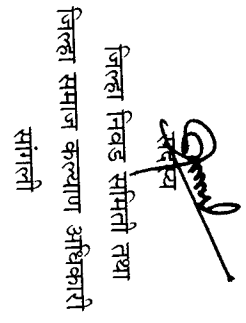 सदस्य
जिल्हा निवड समिती तथा
जिल्हा समाज कल्याण अधिकारी
सांगली